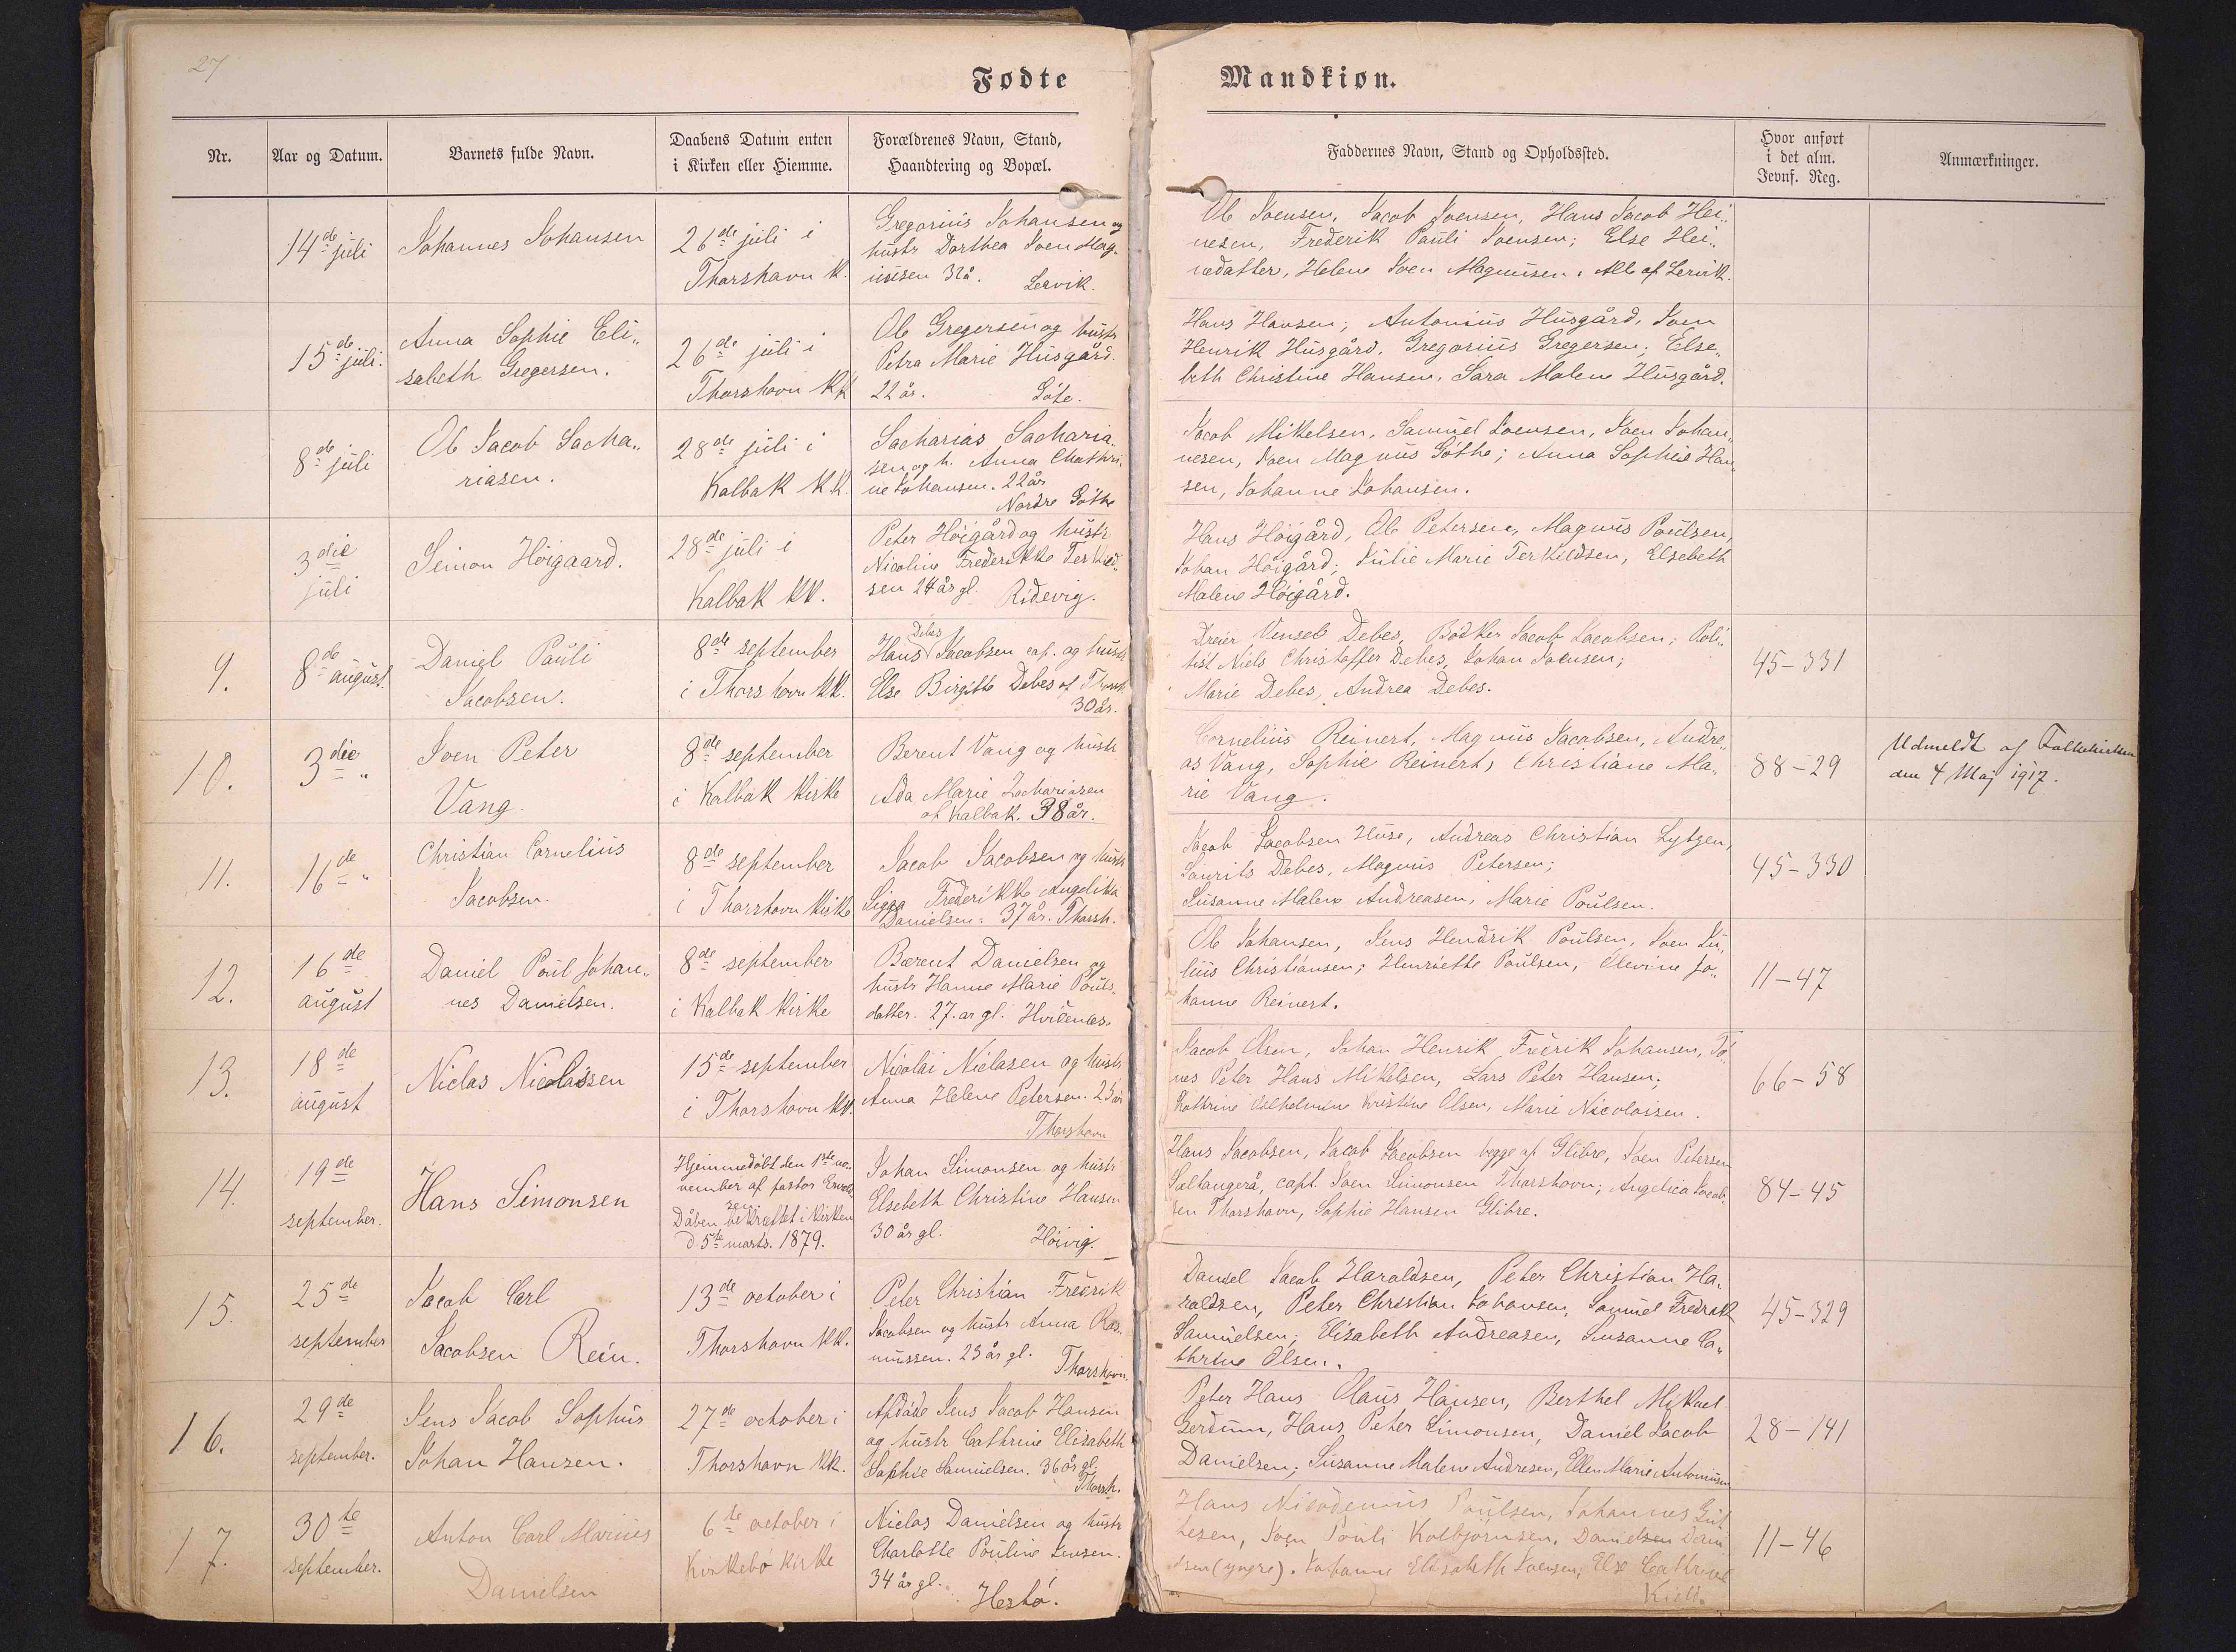 27
Fødte
Mandkiøn.
Nr.
Aar og Datum.
Barnets fulde Navn.
Daabens Datum enten
i Kirken eller Hiemme.
Forældrenes Navn, Stand,
Haandtering og Bopæl.
Faddernes Navn, Stand og Opholdssted.
Hvor anført
i det alm.
Jevnf. Reg.
Anmærkninger.
14de juli
Johannes Johansen
26de juli i
Thorshavn K.
Gregorius Johansen og
hustr Dorthea Joen Mag-
nusen 32å. Lervik.
Ole Joensen, Jacob Joensen, Hans Jacob Hei„
nesen, Frederik Pauli Joensen; Else Hei„
nedatter, Helene Joen Magnusen. Alle af Lervik.
15de juli.
Anna Sophie Eli„
sabeth Gregersen.
26de juli i
Thorshavn KK
Ole Gregersen og hustr
Petra Marie Husgård.
22 år. Göte.
Hans Hansen; Antonius Husgård, Joen
Henrik Husgård, Gregorius Gregersen; Else„
beth Christine Hansen, Sara Malene Husgård.
8de juli
Ole Jacob Sacha„
riasen.
28de juli i
Kalbak K.K.
Sacharias Sacharia„
sen og h. Anna Chathri„
ne Johansen. 22 år
Nordre Göthe
Jacob Mikelsen, Samuel Joensen, Joen Johan„
nesen, Joen Magnus Göthe; Anna Sophie Han„
sen, Johanne Johansen.
3die
juli
Simon Höigaard.
28de juli i
Kalbak KK.
Peter Höigård og hustr
Nicoline Frederikke Terkild„
sen 24 år gl. Ridevig.
Hans Höigård, Ole Petersen, Magnus Poulsen,
Johan Höigård; Julie Marie Terkildsen, Elsebeth
Malene Höigård.
9.
8de august
Daniel Pauli
Jacobsen.
8de september
i Thorshavn KK.
Debes
Hans Jacobsen cap. og hustr
Else Birgitte Debes af Thorsh.
30 år.
Dreier Vensel Debes, Bödker Jacob Jacobsen; Poli„
tist Niels Christoffer Debes, Johan Joensen;
Marie Debes, Andrea Debes.
45–331
10.
3die „
Joen Peter
Vang.
8de september
i Kalbak Kirke
Berent Vang og hustr
Ada Marie Zachariasen
af Kalbak. 38 år.
Cornelius Reinert, Magnus Jacobsen, Andre„
as Vang, Sophie Reinert, Christiane Ma„
rie Vang.
88–29
Udmeldt af Folkekirken
den 4 Maj 1917.
11.
16de „
Christian Cornelius
Jacobsen.
8de september
i Thorshavn Kirke
Jacob Jacobsen og hustr
Sigga Frederikke Angelika
Danielsen. 37 år. Thorsh.
Jacob Jacobsen Huse, Andreas Christian Lytzen,
Laurits Debes, Magnus Petersen;
Susanne Malene Andreasen, Marie Poulsen.
45–330
12.
16de
august
Daniel Poul Johan„
nes Danielsen.
8de september
i Kalbak Kirke
Berent Danielsen og
hustr Hanne Marie Pouls„
datter. 27. ar gl. Hvidenæs.
Ole Johansen, Jens Hendrik Poulsen, Joen Ju„
lius Christiansen; Henriette Poulsen, Olevine Jo„
hanne Reinert.
11–47
13.
18de
august
Niclas Nicolaisen
15de september
i Thorshavn KK.
Nicolai Niclasen og hustr
Anna Helene Petersen. 25 år
Thorshavn
Jacob Olsen, Johan Henrik Fredrik Johansen, To„
nes Peter Hans Mikelsen, Lars Peter Hansen;
Kathrine Vilhelmine Kristine Olsen, Marie Nicolaisen.
66–58
14.
19de
september.
Hans Simonsen
Hjemmedöbt den 1ste no„
vember af pastor Evald„
sen.
Dåben bekræftet i Kirken
d. 5te marts. 1879.
Johan Simonsen og hustr
Elsebeth Christine Hansen
30 år gl. Höivig.
Hans Jacobsen, Jacob Jacobsen begge af Glibre, Joen Petersen
Saltangerå, capt. Joen Simonsen Thorshavn; Angelica Jacob„
sen Thorshavn, Sophie Hansen Glibre.
84–45
15.
25de
september
Jacob Carl
Jacobsen Rein.
13de october i
Thorshavn KK.
Peter Christian Fredrik
Jacobsen og hustr Anna Ras„
mussen. 23 år gl. Thorshavn.
Daniel Jacob Haraldsen, Peter Christian Ha„
raldsen, Peter Christian Johansen, Samuel Fredrik
Samuelsen; Elisabeth Andreasen, Susanne Ca„
thrine Olsen.
45–329
16.
29de
september.
Jens Jacob Sophus
Johan Hansen.
27de october i
Thorshavn KK.
Afdöde Jens Jacob Hansen
og hustr Cathrine Elisabeth
Sophie Samuelsen. 36 år gl.
Thorsh.
Peter Hans Claus Hansen, Berthel Mikael
Gerdum, Hans Peter Simonsen, Daniel Jacob
Danielsen; Susanne Malene Andresen, Ellen Marie Antoniusen
28–141
17.
30te
september.
Anton Carl Marius
Danielsen
6te october i
Kirkebö Kirke
Niclas Danielsen og hustr
Charlotte Pouline Jensen.
34 år gl. Hestö.
Hans Nicodemus Poulsen, Johannes
Joen Pouli Kolbjörnsen, Danielsen
(yngre). Johanne Elisabeth Joensen, Else Cathrine
Kield.
11–46